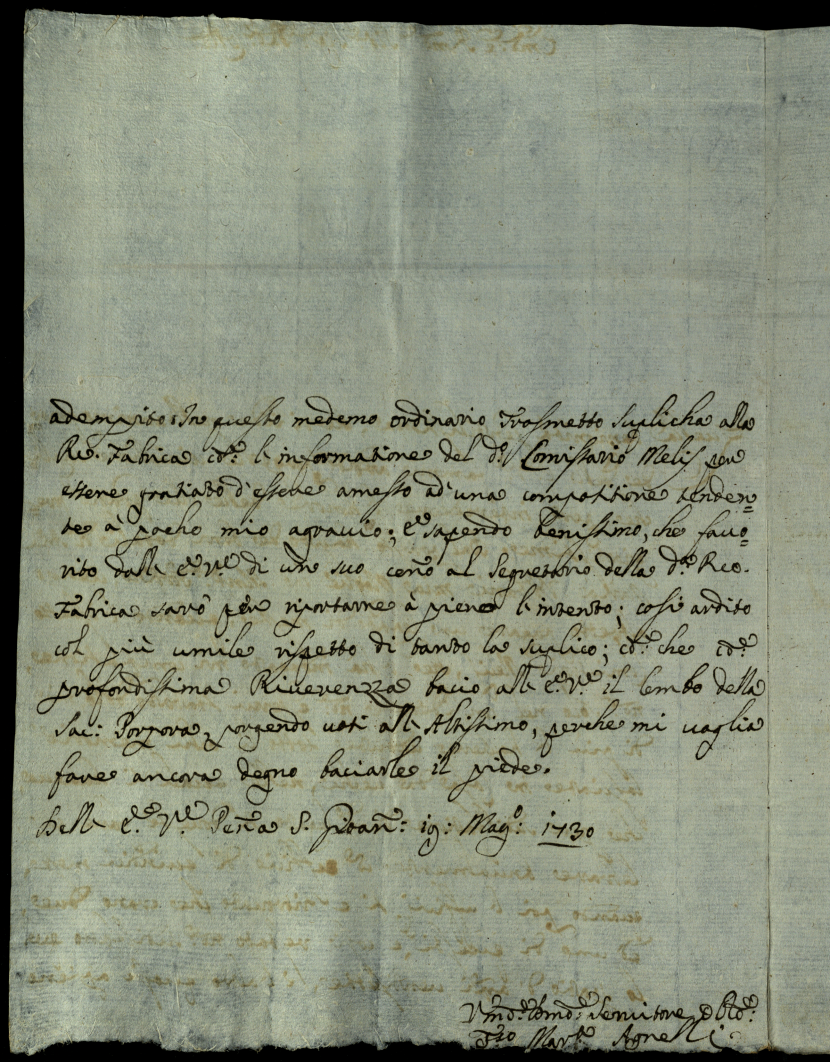 adempito: In questo medemo ordinario Trasmetto suplicha alla
Re. Fabrica cõ l'informatione del dº Comissario Melis per
essere gratiato d'essere amesso ad' una compositione tenden=
te à pocho mio agravio; e sapendo benissimo, che favo=
rito dall' E.V. di un suo ceño al Segretario della dª Re.
Fabrica sarò per riportarne à pieno l'intento; così ardito
col più umile rispetto di tanto la suplico; che
profondissima Riverenza bacio all' E.V. il lembo della
Sac: Porpora, porgendo voti all' Altissimo, perche mi voglia
fare ancora degno baciarle il piede.
Dell' E.V. S. Gioañ: 19: Magº: 1730
Servitore
Agnelli